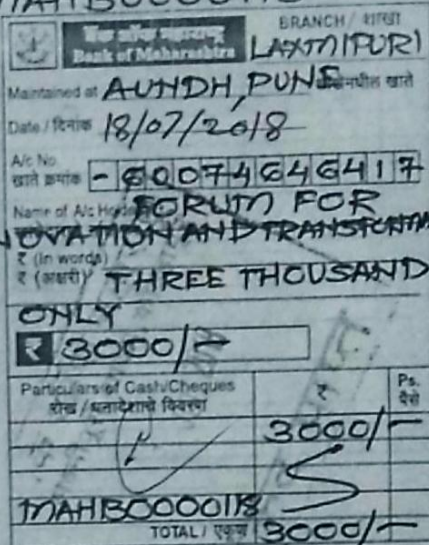 MAHB0000118
BRANCH / शाखा
बैंक ऑफ महाराष्ट्र
Bank of Maharashtra
LAXMIPURI
Maintained at AUNDH, PUNE येथील खाते
Date / दिनांक 18/07/2018
A/c No.
खाते क्रमांक - 60074646417
Name of A/c Holder FORUM FOR
NOVATION AND TRANSFORMA
₹ (in words)
₹ (अक्षरी) THREE THOUSAND
ONLY
₹ 3000/-
Particulars of Cash/Cheques ₹ Ps.
रोख / धनादेशाचे विवरण पैसे
3000/-
MAHB0000118
TOTAL / एकूण 3000/-